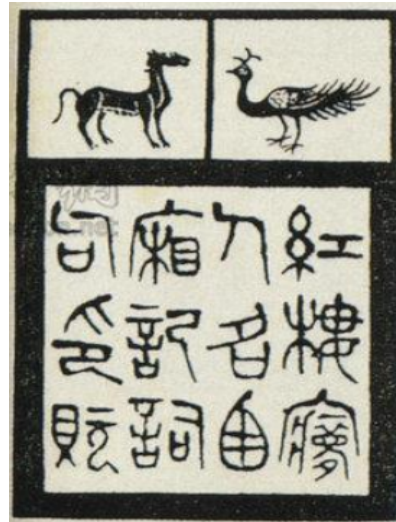 紅樓夢
人名西
廂記詞
句印貦